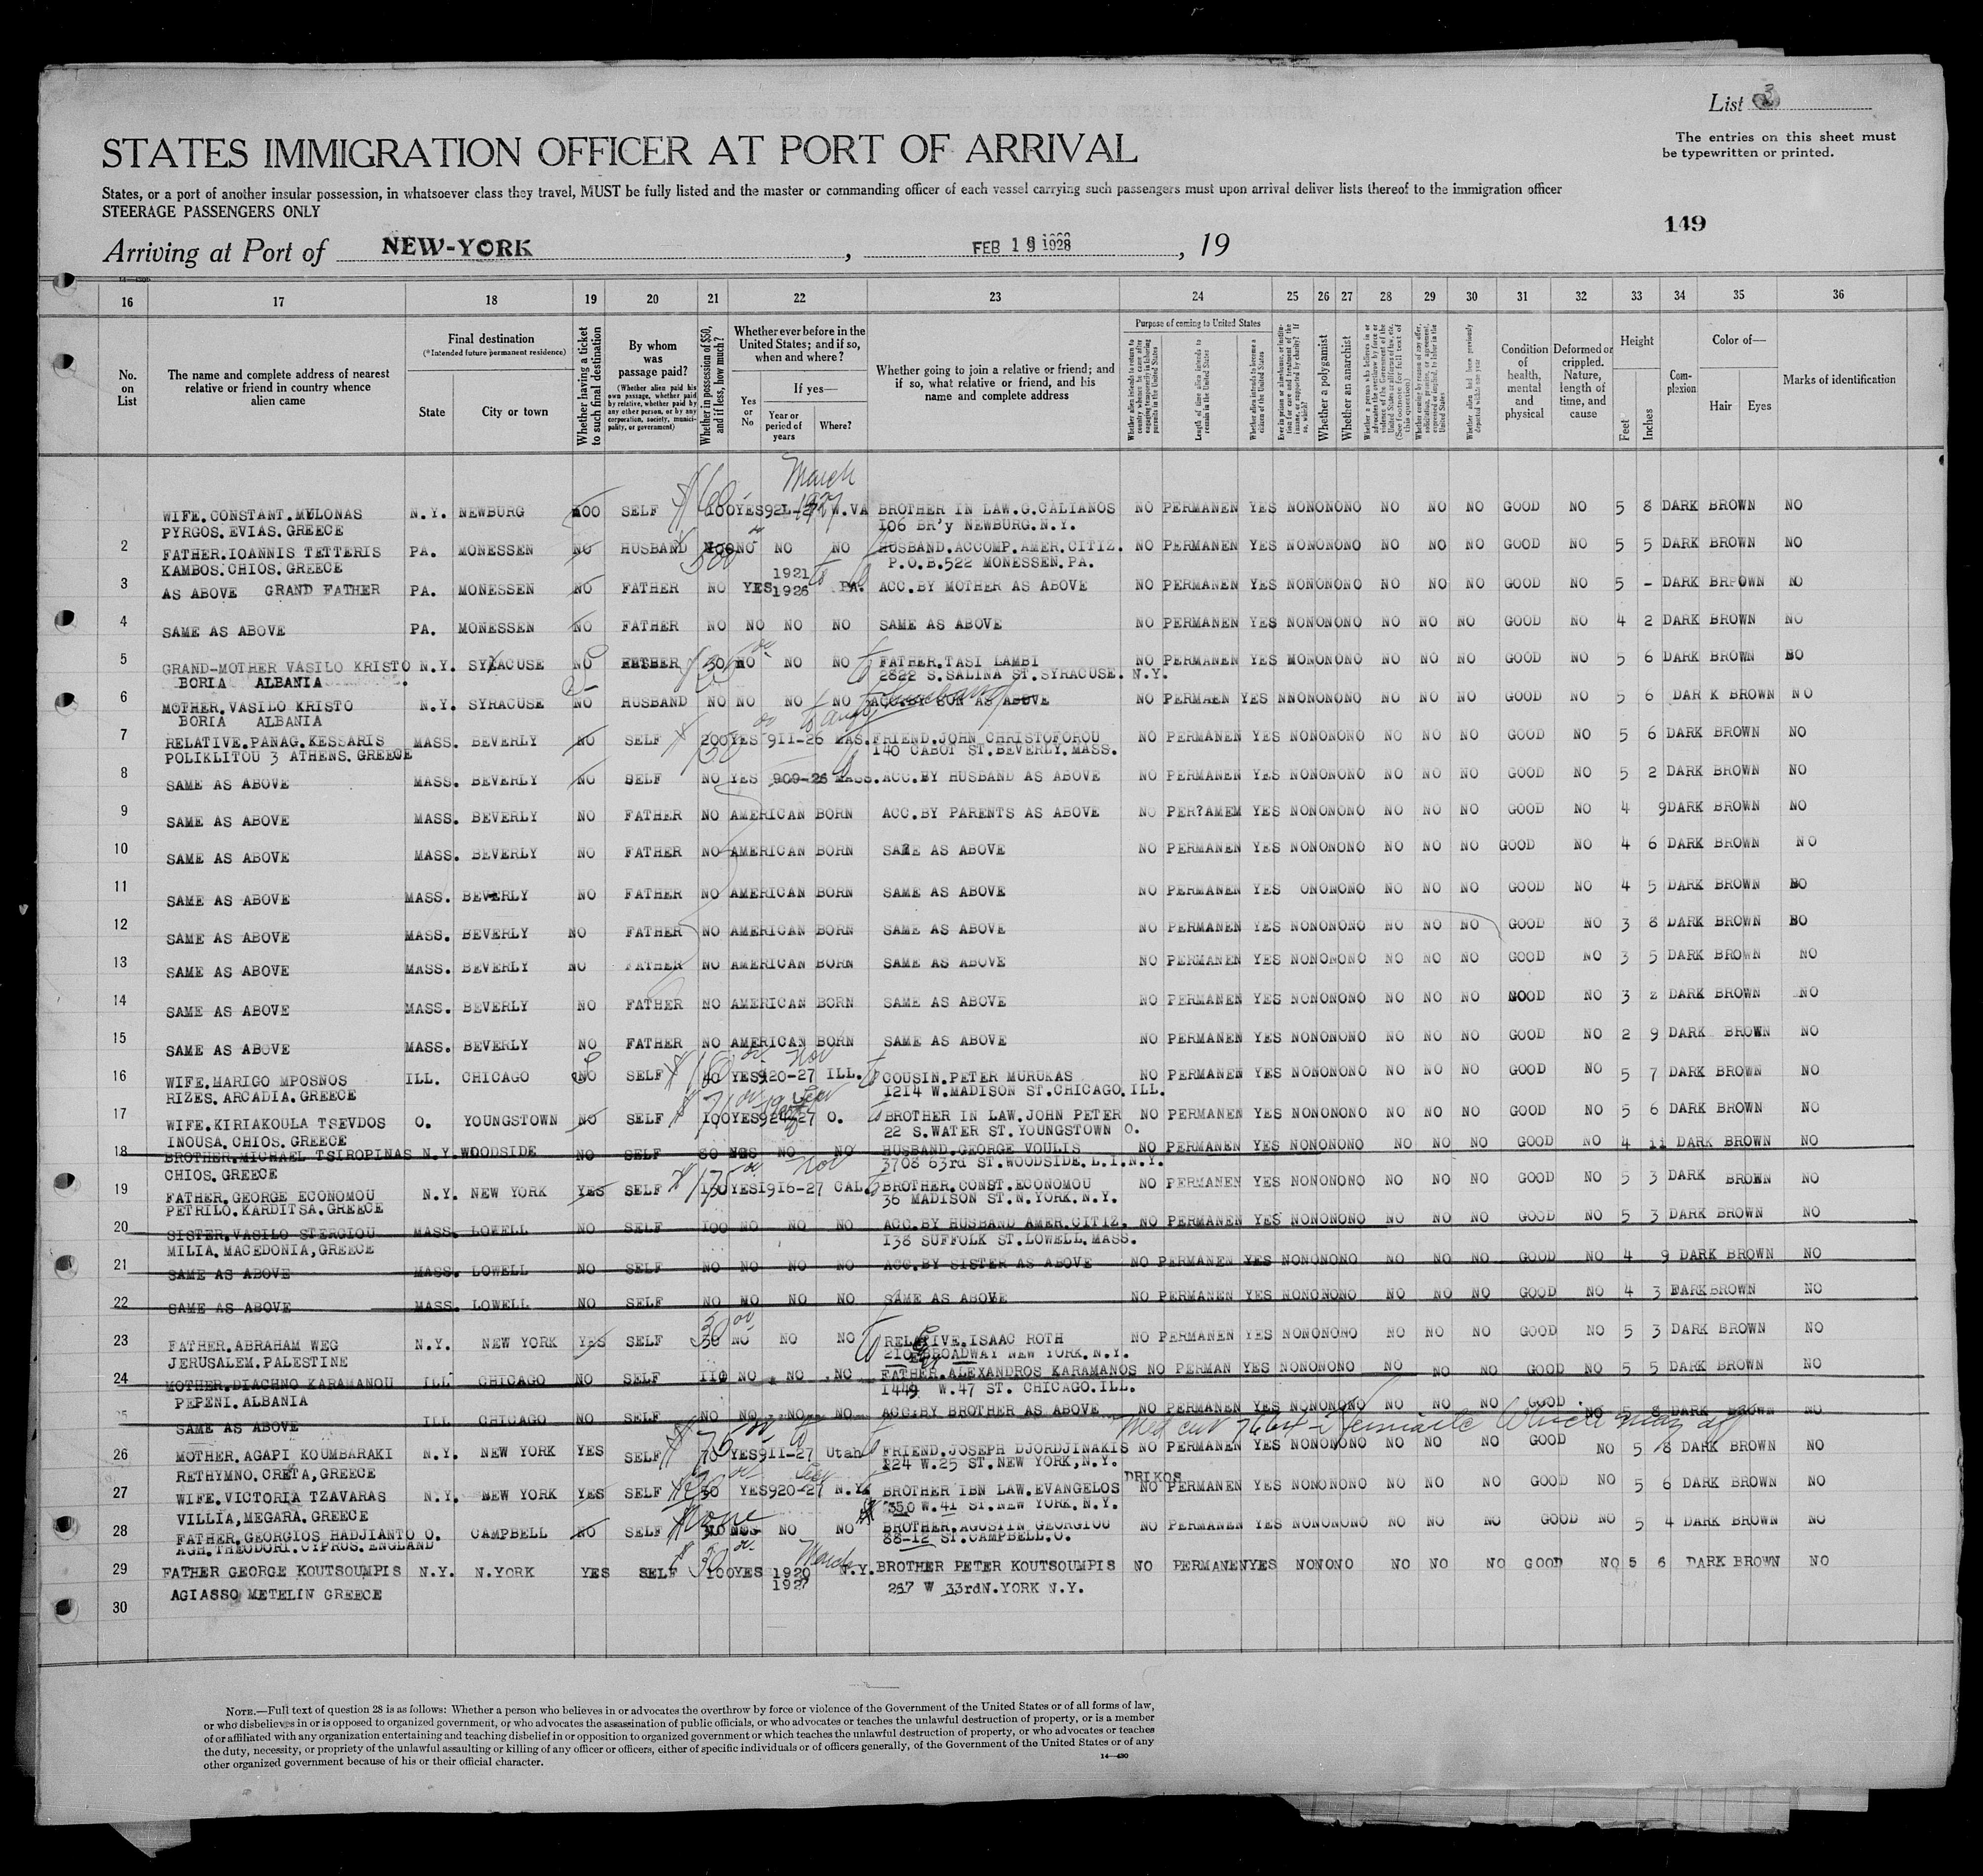 List 3
STATES IMMIGRATION OFFICER AT PORT OF ARRIVAL
The entries on this sheet must
be typewritten or printed.
States, or a port of another insular possession, in whatsoever class they travel, MUST be fully listed and the master or commanding officer of each vessel carrying such passengers must upon arrival deliver lists thereof to the immigration officer
STEERAGE PASSENGERS ONLY
149
Arriving at Port of NEW-YORK , FEB 19 1928 , 19
16 17 18 19 20 21 22 23 24 25 26 27 28 29 30 31 32 33 34 35 36
No. on List
The name and complete address of nearest relative or friend in country whence alien came
Final destination
(*Intended future permanent residence)
State
City or town
Whether having a ticket to such final destination
By whom was passage paid?
(Whether alien paid his own passage, whether paid by relative, whether paid by any other person, or by any corporation, society, municipality, or government)
Whether in possession of $50, and if less, how much?
Whether ever before in the United States; and if so, when and where?
Yes or No
If yes—
Year or period of years
Where?
Whether going to join a relative or friend; and if so, what relative or friend, and his name and complete address
Purpose of coming to United States
Whether alien intends to return to country whence he came after engaging temporarily in laboring pursuits in the United States
Length of time alien intends to remain in the United States
Whether alien intends to become a citizen of the United States
Whether a polygamist
Whether an anarchist
Condition of health, mental and physical
Deformed or crippled. Nature, length of time, and cause
Height
Feet
Inches
Complexion
Color of—
Hair
Eyes
Marks of identification
March
WIFE.CONSTANT.MYLONAS N.Y. NEWBURG SELF 100 YES 921-27 W.VA BROTHER IN LAW.G.CALIANOS NO PERMANEN YES NONONONO NO NO NO GOOD NO 5 8 DARK BROWN NO
PYRGOS.EVIAS.GREECE 106 BR'y NEWBURG.N.Y.
2 FATHER.IOANNIS TETTERIS PA. MONESSEN NO HUSBAND NO NO NO HUSBAND.ACCOMP.AMER.CITIZ. NO PERMANEN YES NONONONO NO NO NO GOOD NO 5 5 DARK BROWN NO
KAMBOS.CHIOS.GREECE 500 P.O.B.522 MONESSEN.PA.
3 AS ABOVE GRAND FATHER PA. MONESSEN NO FATHER NO YES 1921 1926 PA. ACC.BY MOTHER AS ABOVE NO PERMANEN YES NONONONO NO NO NO GOOD NO 5 - DARK BRPOWN NO
4 SAME AS ABOVE PA. MONESSEN NO FATHER NO NO NO NO SAME AS ABOVE NO PERMANEN YES NONONONO NO NO NO GOOD NO 4 2 DARK BROWN NO
5 GRAND-MOTHER VASILO KRISTO N.Y. SYRACUSE NO FATHER 30 NO NO NO FATHER.TASI LAMBI NO PERMANEN YES NONONONO NO NO NO GOOD NO 5 6 DARK BROWN NO
BORIA ALBANIA 2822 S.SALINA ST.SYRACUSE. N.Y.
6 MOTHER.VASILO KRISTO N.Y. SYRACUSE NO HUSBAND NO NO NO NO ACC.BY SON AS ABOVE husband NO PERMAEN YES NNONONONO NO NO NO GOOD NO 5 6 DAR K BROWN NO
BORIA ALBANIA
7 RELATIVE.PANAG.KESSARIS MASS. BEVERLY NO SELF 200 YES 911-26 MAS. FRIEND.JOHN CHRISTOFOROU NO PERMANEN YES NONONONO NO NO NO GOOD NO 5 6 DARK BROWN NO
POLIKLITOU 3 ATHENS.GREECE 140 CABOT ST.BEVERLY.MASS.
8 SAME AS ABOVE MASS. BEVERLY NO SELF NO YES 909-26 MASS. ACC.BY HUSBAND AS ABOVE NO PERMANEN YES NONONONO NO NO NO GOOD NO 5 2 DARK BROWN NO
9 SAME AS ABOVE MASS. BEVERLY NO FATHER NO AMERICAN BORN ACC.BY PARENTS AS ABOVE NO PER?AMEM YES NONONONO NO NO NO GOOD NO 4 9 DARK BROWN NO
10 SAME AS ABOVE MASS. BEVERLY NO FATHER NO AMERICAN BORN SAME AS ABOVE NO PERMANEN YES NONONONO NO NO NO GOOD NO 4 6 DARK BROWN NO
11 SAME AS ABOVE MASS. BEVERLY NO FATHER NO AMERICAN BORN SAME AS ABOVE NO PERMANEN YES ONONONO NO NO NO GOOD NO 4 5 DARK BROWN NO
12 SAME AS ABOVE MASS. BEVERLY NO FATHER NO AMERICAN BORN SAME AS ABOVE NO PERMANEN YES NONONONO NO NO NO GOOD NO 3 8 DARK BROWN NO
13 SAME AS ABOVE MASS. BEVERLY NO FATHER NO AMERICAN BORN SAME AS ABOVE NO PERMANEN YES NONONONO NO NO NO GOOD NO 3 5 DARK BROWN NO
14 SAME AS ABOVE MASS. BEVERLY NO FATHER NO AMERICAN BORN SAME AS ABOVE NO PERMANEN YES NONONONO NO NO NO GOOD NO 3 2 DARK BROWN NO
15 SAME AS ABOVE MASS. BEVERLY NO FATHER NO AMERICAN BORN SAME AS ABOVE NO PERMANEN YES NONONONO NO NO NO GOOD NO 2 9 DARK BROWN NO
16 WIFE.MARIGO MPOSNOS ILL. CHICAGO NO SELF 40 YES 920-27 Nov ILL. COUSIN.PETER MURUKAS NO PERMANEN YES NONONONO NO NO NO GOOD NO 5 7 DARK BROWN NO
RIZES.ARCADIA.GREECE 1214 W.MADISON ST.CHICAGO.ILL.
17 WIFE.KIRIAKOULA TSEVDOS O. YOUNGSTOWN NO SELF 100 YES O. BROTHER IN LAW.JOHN PETER NO PERMANEN YES NONONONO NO NO NO GOOD NO 5 6 DARK BROWN NO
INOUSA.CHIOS.GREECE 22 S.WATER ST.YOUNGSTOWN O.
18 BROTHER.MICHAEL TSIROPINAS N.Y. WOODSIDE NO SELF 80 NO NO HUSBAND.GEORGE VOULIS NO PERMANEN YES NONONONO NO NO NO GOOD NO 4 11 DARK BROWN NO
CHIOS.GREECE 3708 63rd ST.WOODSIDE.L.I.N.Y.
19 FATHER.GEORGE ECONOMOU N.Y. NEW YORK YES SELF YES 1916-27 Nov CAL. BROTHER.CONST.ECONOMOU NO PERMANEN YES NONONONO NO NO NO GOOD NO 5 3 DARK BROWN NO
PETRILO.KARDITSA.GREECE 36 MADISON ST.N.YORK.N.Y.
20 SISTER.VASILO STERGIOU MASS. LOWELL NO SELF 100 NO NO NO ACC.BY HUSBAND AMER.CITIZ. NO PERMANEN YES NONONONO NO NO NO GOOD NO 5 3 DARK BROWN NO
MILIA.MACEDONIA,GREECE 138 SUFFOLK ST.LOWELL.MASS.
21 SAME AS ABOVE MASS. LOWELL NO SELF NO NO NO NO ACC.BY SISTER AS ABOVE NO PERMANEN YES NONONONO NO NO NO GOOD NO 4 9 DARK BROWN NO
22 SAME AS ABOVE MASS. LOWELL NO SELF NO NO NO NO SAME AS ABOVE NO PERMANEN YES NONONONO NO NO NO GOOD NO 4 3 DARK BROWN NO
23 FATHER.ABRAHAM WEG N.Y. NEW YORK YES SELF 30 NO NO NO RELATIVE.ISAAC ROTH NO PERMANEN YES NONONONO NO NO NO GOOD NO 5 3 DARK BROWN NO
JERUSALEM.PALESTINE BROADWAY NEW YORK.N.Y.
24 MOTHER.DIACHNO KARAMANOU ILL CHICAGO NO SELF 110 NO NO NO FATHER.ALEXANDROS KARAMANOS NO PERMAN YES NONONONO NO NO NO GOOD NO 5 5 DARK BROWN NO
PEPENI.ALBANIA 1449 W.47 ST. CHICAGO.ILL.
SAME AS ABOVE ILL CHICAGO NO SELF NO NO NO NO ACC.BY BROTHER AS ABOVE NO PERMANEN YES NONONONO NO NO NO GOOD NO 5 8 DARK BROWN NO
26 MOTHER.AGAPI KOUMBARAKI N.Y. NEW YORK YES SELF 70 YES 911-27 Utah FRIEND.JOSEPH DJORDJINAKIS NO PERMANEN YES NONONONO NO NO NO GOOD NO 5 8 DARK BROWN NO
RETHYMNO.CRETA,GREECE 124 W.25 ST.NEW YORK,N.Y.
27 WIFE.VICTORIA TZAVARAS N.Y. NEW YORK YES SELF YES 920-27 N.Y. BROTHER IBN LAW.EVANGELOS DRIKOS NO PERMANEN YES NONONONO NO NO NO GOOD NO 5 6 DARK BROWN NO
VILLIA,MEGARA.GREECE 350 W.41 ST.NEW YORK.N.Y.
28 FATHER.GEORGIOS HADJIANTO O. CAMPBELL NO SELF None NO NO BROTHER.AGUSTIN GEORGIOU NO PERMANEN YES NONONONO NO NO NO GOOD NO 5 4 DARK BROWN NO
AGH.THEODORI.CYPRUS.ENGLAND 88-12 ST.CAMPBELL.O.
29 FATHER GEORGE KOUTSOUMPIS N.Y. N.YORK YES SELF 100 YES 1920 1927 March N.Y. BROTHER PETER KOUTSOUMPIS NO PERMANEN YES NONONO NO NO NO GOOD NO 5 6 DARK BROWN NO
AGIASSO METELIN GREECE 267 W 33rd N.YORK N.Y.
30
NOTE.—Full text of question 28 is as follows: Whether a person who believes in or advocates the overthrow by force or violence of the Government of the United States or of all forms of law,
or who disbelieves in or is opposed to organized government, or who advocates the assassination of public officials, or who advocates or teaches the unlawful destruction of property, or is a member
of or affiliated with any organization entertaining and teaching disbelief in or opposition to organized government or which teaches the unlawful destruction of property, or who advocates or teaches
the duty, necessity, or propriety of the unlawful assaulting or killing of any officer or officers, either of specific individuals or of officers generally, of the Government of the United States or of any
other organized government because of his or their official character.
14—430